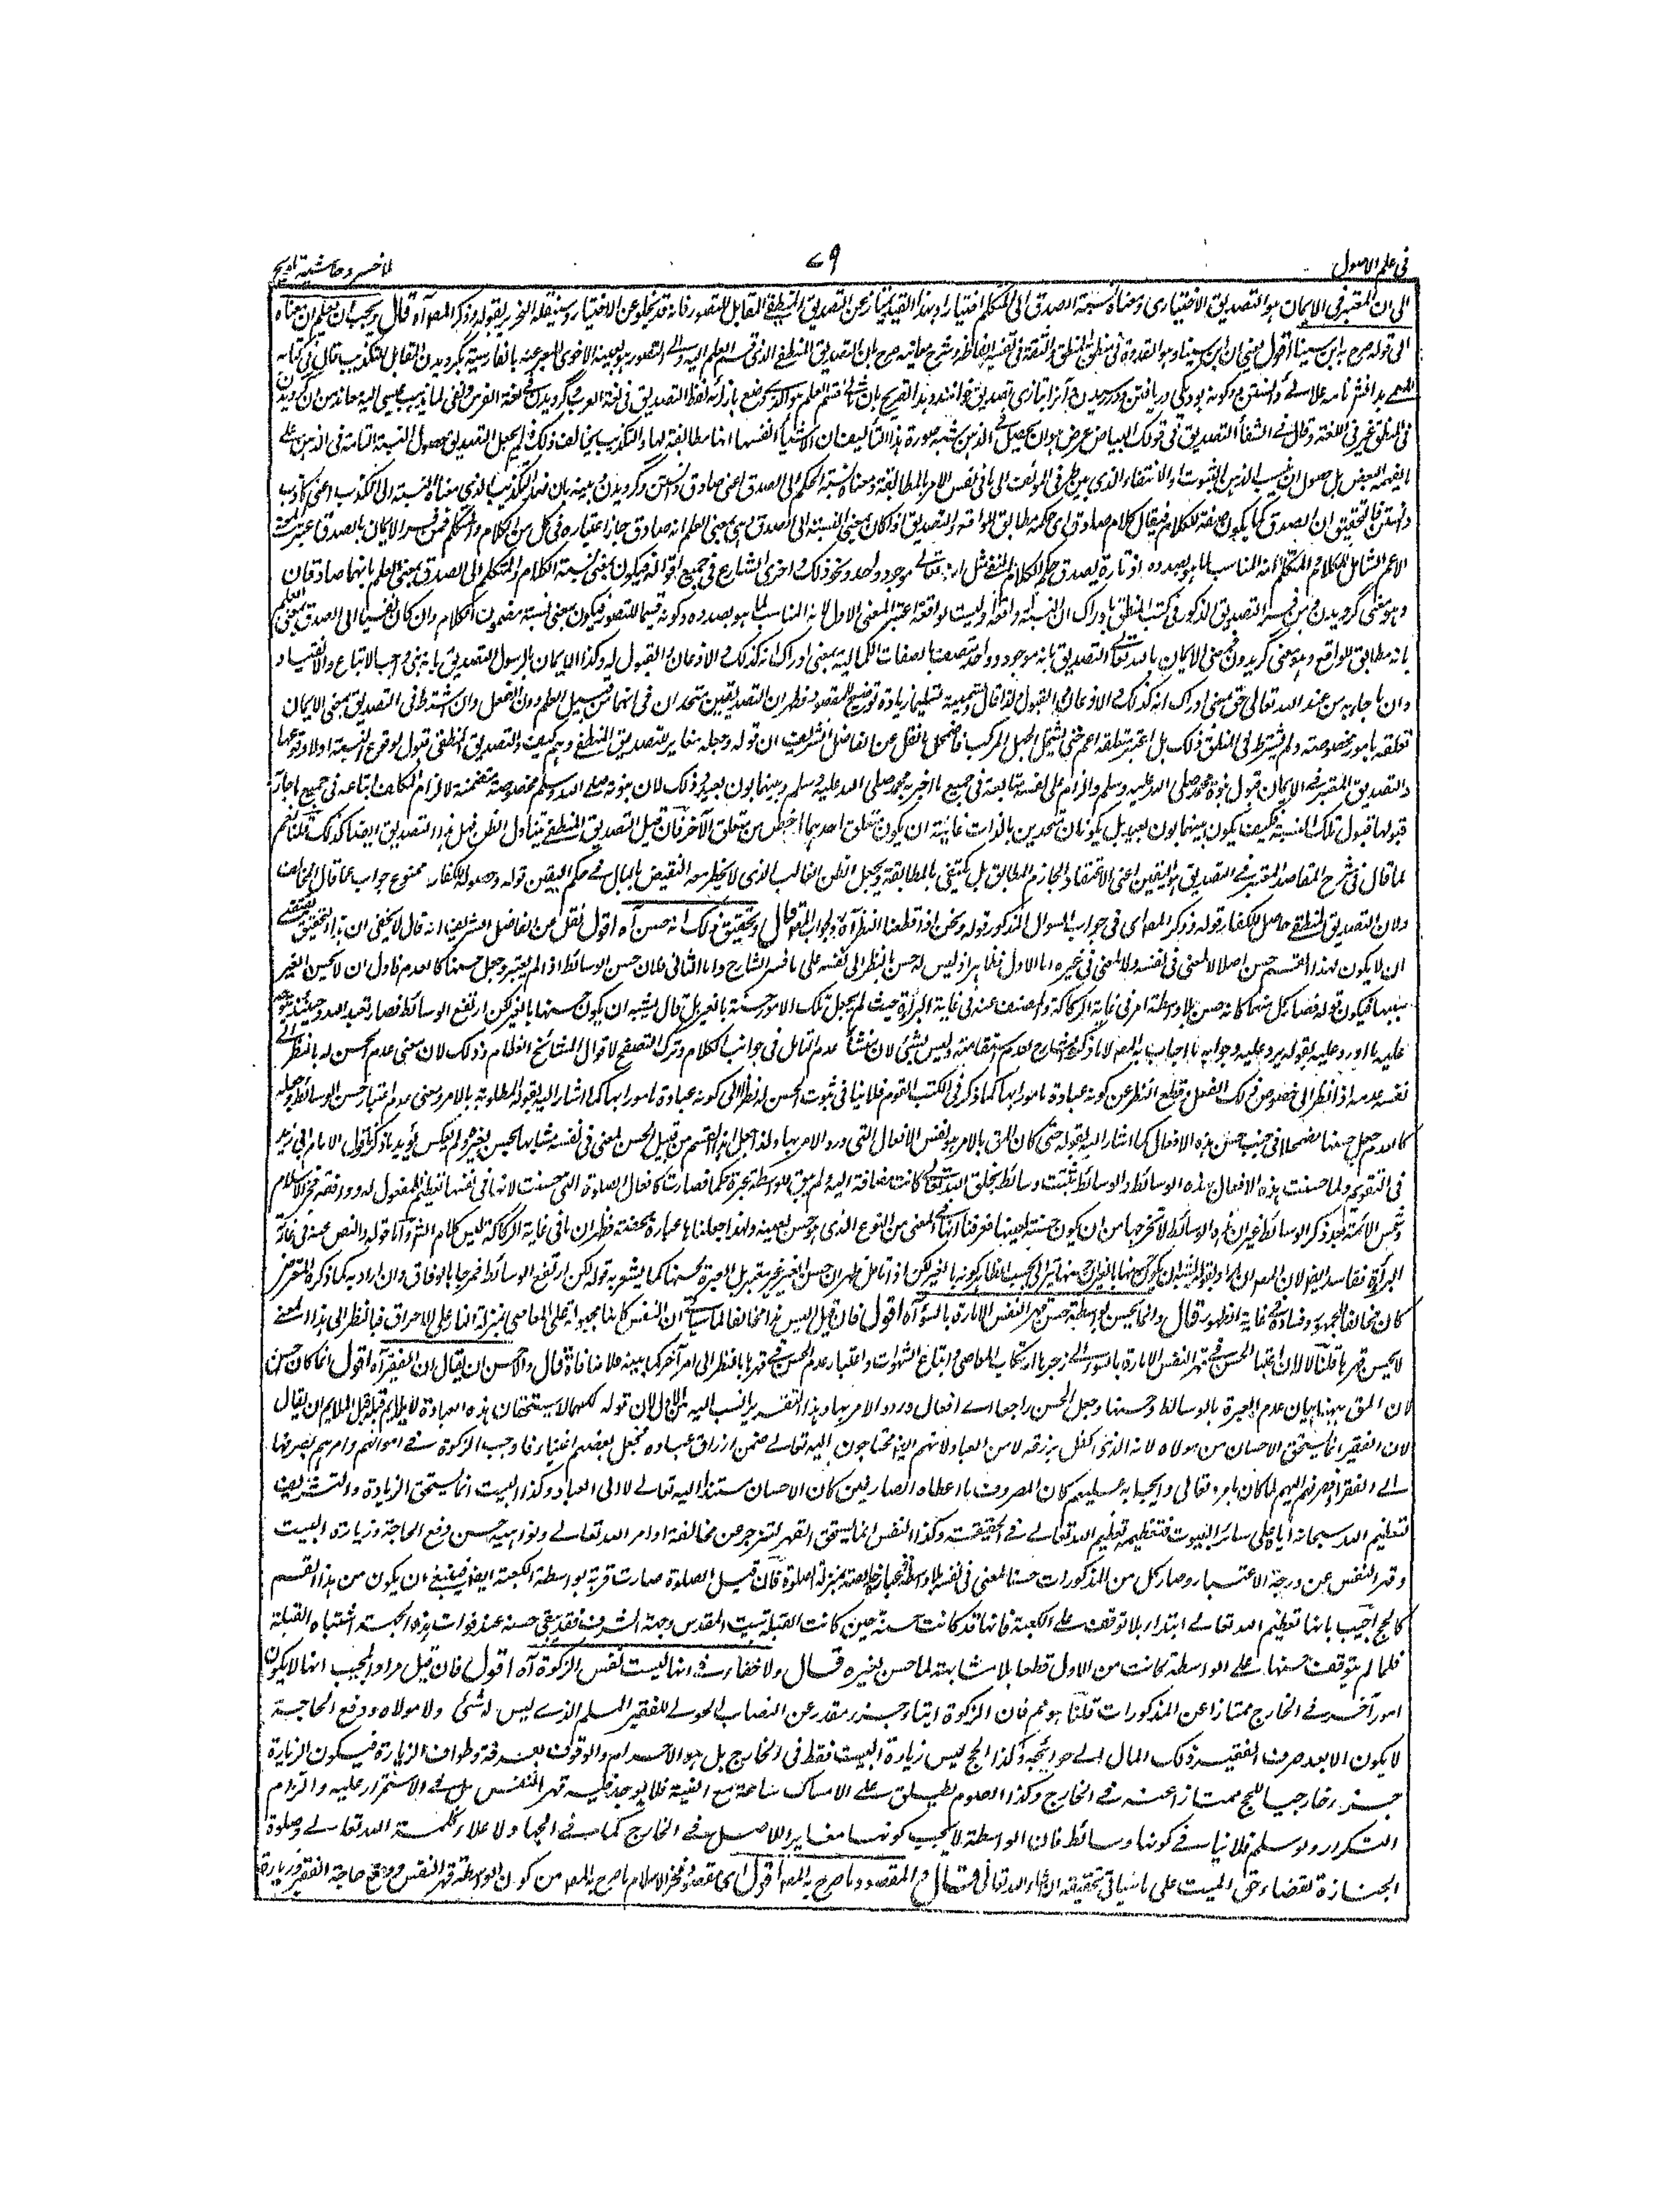 في علم الاصول
٧٩
ملا خسرو حاشية تلويح
الى ان المعتبر في الايمان هو التصديق الاختياري ومعناه نسبة الصدق الى المتكلم اختيارا وبهذا القيد يمتاز عن التصديق المنطقي المقابل للتصور فانه قد يخلو عن الاختيار وسينقله النحرير بقوله وذكر المص آه قال ويجب ان يعلم ان معناه
الى قوله صرح به ابن سينا اقول يعني ان ابن سينا وهو القدوة في المنطق والثقة في تفسير الفاظه وشرح معانيه صرح بان التصديق المنطقي الذي قسم العلم اليه والى التصور هو بعينه اللغوي المعبر عنه بالفارسية بگرويدن المقابل للتكذيب قال في كتابه
في المنطق غيره في اللغة وقال في الشفا التصديق في قولك البياض عرض هو ان يحصل في الذهن نسبة صورة هذا التأليف الى الاشياء انفسها انها مطابقة لها والتكذيب يخالف ذلك فلم يجعل التصديق حصول النسبة التامة في الذهن على
ما يفهمه البعض بل حصول ان ينسب الذهن الثبوت او الانتفاء الذي بين طرفي المؤلف الى ما في نفس الامر بالمطابقة ومعناه نسبة الحكم الى الصدق اعني صادق داشتن وگرويدن وبينه بان ضد التكذيب الذي معناه النسبة الى الكذب اعني كاذب
داشتن فالتحقيق ان الصدق كما يكون صفة للكلام فيقال كلام صادق اي حكمه مطابق للواقع والتصديق اذا كان بمعنى النسبة الى الصدق اي بمعنى العلم انه صادق جاز اعتباره في كل من الكلام والمتكلم فمن فسر الايمان بالصدق اعتبر المعنى
الاعم الشامل للكلام والمتكلم لانه المناسب لما هو بصدده اذ تارة يصدق حكم الكلام النفسي مثل انه تعالى موجود واحد ونحو ذلك واخرى الشارع في جميع اقواله فيكون بمعنى نسبة الكلام والمتكلم الى الصدق بمعنى العلم بانهما صادقان
وهو معنى گرويدن ومن فسر التصديق المذكور في كتب المنطق بادراك ان النسبة واقعة او ليست بواقعة اعتبر المعنى الاول لانه المناسب لما هو بصدده وكونه قسيما للتصور فيكون بمعنى نسبة مضمون الكلام وان كان نفسيا الى الصدق بمعنى العلم
بانه مطابق للواقع وهو معنى گرويدن فمعنى الايمان بالله تعالى التصديق بانه موجود وواحد متصف بالصفات الكمالية بمعنى ادراك انه كذلك والاذعان والقبول له وكذا الايمان بالرسول التصديق بانه نبي واجب الاتباع والانقياد
وان ما جاء به من عند الله تعالى حق بمعنى ادراك انه كذلك والاذعان والقبول ولذا قال وتسميته تسليما زيادة توضيح للمقصود فظهر ان التصديقين متحدان في انهما من قبيل العلم دون الفعل وان اشترط في التصديق بمعنى الايمان
تعلقه بامور مخصوصة ولم يشترط في المنطق ذلك بل اعتبر متعلقه اعم حتى يشمل الجهل المركب فاضمحل ما نقل عن الفاضل الشريف ان قوله وجعله مغاير للتصديق المنطقي وهم كيف والتصديق المنطقي قبول لوقوع النسبة او لا وقوعها
والتصديق المعتبر في الايمان قبول نبوة محمد صلى الله عليه وسلم والزام على نفسه متابعته في جميع ما اخبر به محمد صلى الله عليه وسلم وبينهما بون بعيد وذلك لان نبوته صلى الله عليه وسلم مخصوصة متضمنة لالزام المكلف اتباعه في جميع ما جاء به
قبولها قبول تلك النسبة فكيف يكون بينهما بون بعيد بل يكونان متحدين بالذات غايته ان يكون متعلق احدهما اخص من متعلق الآخر فان قيل التصديق المنطقي يتناول الظن فهل هذا التصديق ايضا كذلك قلنا نعم
لما قال في شرح المقاصد المعتبر في التصديق هو اليقين اعني الاعتقاد الجازم المطابق بل يكتفي بالمطابقة ويجعل الظن الغالب الذي لا يخطر معه النقيض بالبال في حكم اليقين قوله وحصوله للكفار ممنوع جواب عما قال المخالف
ولان التصديق المنطقي حاصل للكفار قوله وذكر المص اي في جواب السوال المذكور قوله ونحن اذا قطعنا النظر آه قال وتحقيق ذلك انه حسن آه اقول نقل عن الفاضل الشريف انه قال لا يخفى ان هذا التحقيق يقتضي
ان لا يكون لهذا القسم حسن اصلا لا لمعنى في نفسه ولا لمعنى في غيره اما الاول فظاهر اذ ليس له حسن بالنظر الى نفسه على ما فسر الشارح واما الثاني فلان حسن الوسائط اذ لم يعتبر وجعل حسنها كالعدم فاول ان لا يحسن الغير
عليه ما اورد عليه بقوله يرد عليه وجوابه ما اجاب به المص لا ما ذكره الشارح لعدم استقامته وليس بشيء لان منشأ عدم التامل في جوانب الكلام وترك التصفح لاقوال المشائخ العظام وذلك لان معنى عدم الحسن له بالنظر الى
نفسه عدمه اذا نظر الى خصوص ذلك الفعل وقطع النظر عن كونه عبادة مامورا بها كما ذكر في الكتب القوم فلا ينافي ثبوت الحسن له نظرا الى كونه عبادة مامورا بها كما اشار اليه بقوله المطلوبة بالامر ومعنى عدم اعتبار حسن الوسائط وجعله
كالعدم جعل حسنها مضمحلا في جنب حسن هذه الافعال كما اشار اليه بقوله حتى كان المق بالامر هو نفس الافعال التي ورد الامر بها ولذا جعل هذا القسم من قبيل الحسن لمعنى في نفسه مشابها للحسن لغيره ولم يعكس يؤيد ما ذكرنا قول الامام ابي زيد
في التقويم ولما حسنت هذه الافعال بهذه الوسائط والوسائط ثبتت وسائط بخلق الله تعالى كانت مضافة اليه ولم يبق للواسطة عبرة حكما فصارت كافعال الصلوة التي حسنت لانها في نفسها تعظيم للمفعول له ووافقه فخر الاسلام
وشمس الائمة بعد ذكر الوسائط غير ان هذه الوسائط لا تخرجها من ان يكون حسنة لعينها فعرفنا انها في المعنى من النوع الذي هو حسن لعينه ولهذا جعلناها عبادة محضة فظهر ان ما في غاية الركاكة ليس كلام الشم واما قوله والنص عنه في غاية
كان مخالفا للجمهور وفساده في غاية الظهور قال وانما يحسن بواسطة حسن قهر النفس الامارة بالسوء آه اقول فان قيل اليس هذا مخالفا لما سياتي ان النفس كانها مجبولة على المعاصي بمنزلة النار على الاحراق فبالنظر الى هذا المعنى
لا يحسن قهرها قلنا لا لان اعتبار الحسن في قهر النفس الامارة بالسوء الى زجرها ارتكاب المعاصي واتباع الشهوات واعتبار عدم الحسن في قهرها بالنظر الى امر آخر كما بينه فلا منافاة قال والاحسن ان يقال ان الفقير آه اقول انما كان حسن
لان المق بهذا بيان عدم العبرة بالوسائط وحسنها وجعل الحسن راجعا الى افعال ورد الامر بها وهذا التفسير انسب اليه من الاول لان قوله كلهما لا يستحقان هذه العبادة لا يلايم قبله بل الملايم ان يقال
لان الفقير انما يستحق الاحسان من مولاه لانه الذي تكفل برزقه لا من العباد لانهم ايضا محتاجون اليه تعالى ضمن ارزاق عباده فجعل بعضهم اغنياء فاوجب الزكوة في اموالهم وامرهم بصرفها
الى الفقراء فصرفهم اليهم لما كان بامره تعالى وايجابه عليهم كان المصروف ما اعطاه الصارفين كان الاحسان مستندا اليه تعالى لا الى العباد وكذا البيت انما يستحق الزيادة والتشريف
لتعظيم الله سبحانه اياه على سائر البيوت فتعظيمه تعظيم الله تعالى في الحقيقة وكذا النفس انما يستحق القهر لتنزجر عن مخالفة اوامر الله تعالى ونواهيه حسن دفع الحاجة وزيارة البيت
وقهر النفس عن درجة الاعتبار وصار كل من المذكورات حسنا لمعنى في نفسه بلا واسطة عبادة خالصة بمنزلة الصلوة فان قيل الصلوة صارت قربة بواسطة الكعبة ايضا فينبغي ان يكون من هذا القسم
كالحج اجيب بانها تعظيم الله تعالى ابتداء بلا توقف على الكعبة فانها قد كانت حسنة حين كانت القبلة بيت المقدس وجهة المشرف فقد يبقى حسنة عند فوات هذه الجهة اشتباه القبلة
فلما لم يتوقف حسنها على الواسطة كانت من الاول قطعا بلا مشابهة لما حسن لغيره قال ولا خفاء في انها ليست نفس الزكوة آه اقول فان قيل مراد المجيب انها لا يكون
امورا آخر في الخارج ممتازا عن المذكورات قلنا هو نعم فان الزكوة ايتاء جزء مقدر عن النصاب الحولي للفقير المسلم الذي ليس له شئ ولا مولاه ودفع الحاجة
لا يكون الا بعد صرف الفقير ذلك المال الى حوائجه وكذا الحج ليس زيارة البيت فقط في الخارج بل هو الاحرام والوقوف بعرفة وطواف الزيارة فيكون الزيارة
جزء خارجيا للحج ممتازا عنه في الخارج وكذا الصوم يطلق على الامساك ساعة مع النية فلا يوجد فيه قهر النفس بل في الاستمرار عليه والتزام
التكرار ولو سلم فلا ينافي كونها وسائط فان الواسطة لا يجب كونها مغايرا للاصل في الخارج كما في الجهاد لاعلاء كلمة الله تعالى وصلوة
الجنازة لقضاء حق الميت على ما سياتي تحقيقه ان شاء الله تعالى قال والمقصود ما صرح به المص اقول اي مقصود فخر الاسلام ما صرح به المص من كون الواسطة قهر النفس ودفع حاجة الفقير وزيارة